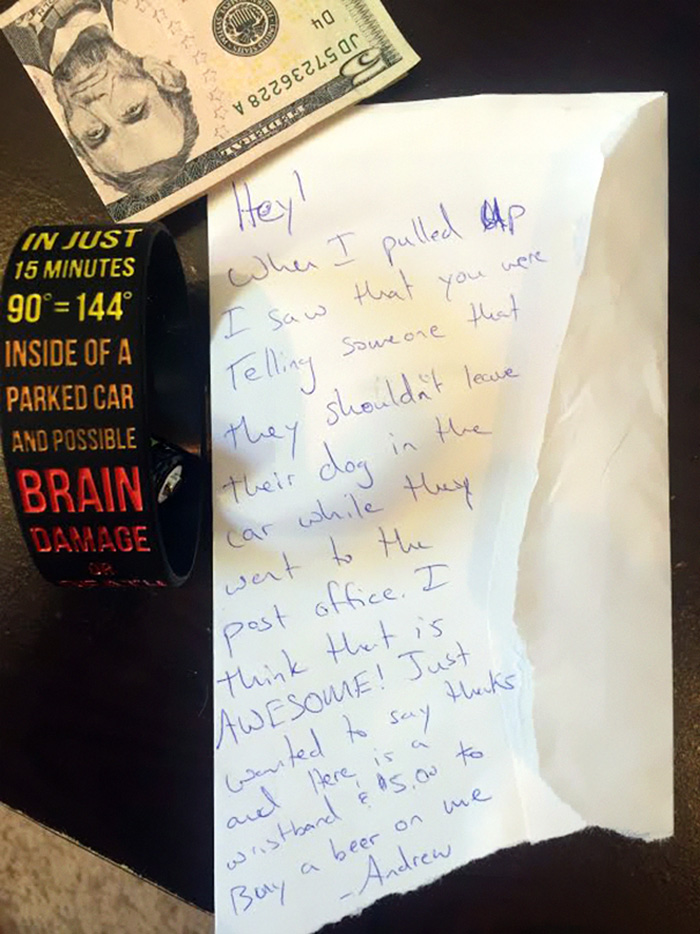 JD57236228A
D4
FEDERAL
5
IN JUST
15 MINUTES
90°=144°
INSIDE OF A
PARKED CAR
AND POSSIBLE
BRAIN
DAMAGE
OR
Hey!
When I pulled Up
I saw that you were
Telling someone that
they shouldn't leave
their dog in the
car while they
went to the
post office. I
think that is
AWESOME! Just
wanted to say thanks
and Here is a
wristband & $5.00 to
Buy a beer on me
- Andrew